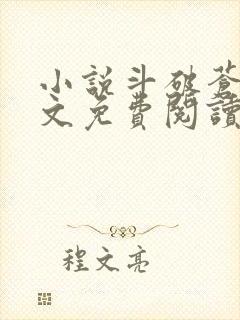 小說斗破蒼
文免費閱讀
程文亮